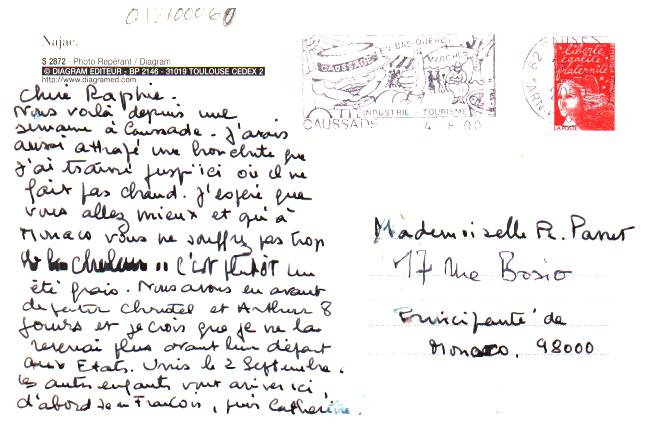 Najac.
S 2872 - Photo Repérant / Diagram
© DIAGRAM EDITEUR - BP 2146 - 31019 TOULOUSE CEDEX 2
http://www.diagramed.com
Nous voilà depuis une
semaine à Caussade. J'avais
aussi attrapé une bronchite que
j'ai traîné jusqu'ici où il ne
fait pas chaud. J'espère que
vous allez mieux et qu'à
Monaco vous ne souffrez pas trop
de la chaleur .. C'est plutôt un
été frais. Nous avons eu avant
de partir Christel et Arthur 8
jours et je crois que je ne la
reverrai plus avant leur départ
aux Etats. Unis le 2 Septembre.
les autres enfants vont arriver ici,
d'abord Jean François, puis Catherine.
EN BAS-QUERCY
CAUSSADE
MARCHES
INDUSTRIE - TOURISME
CAUSSADE 4. 8. 00
82
TARN
liberté
égalité
fraternité
LA POSTE
Mademoiselle R.
17 rue Bosio
Principauté de
Monaco. 98000